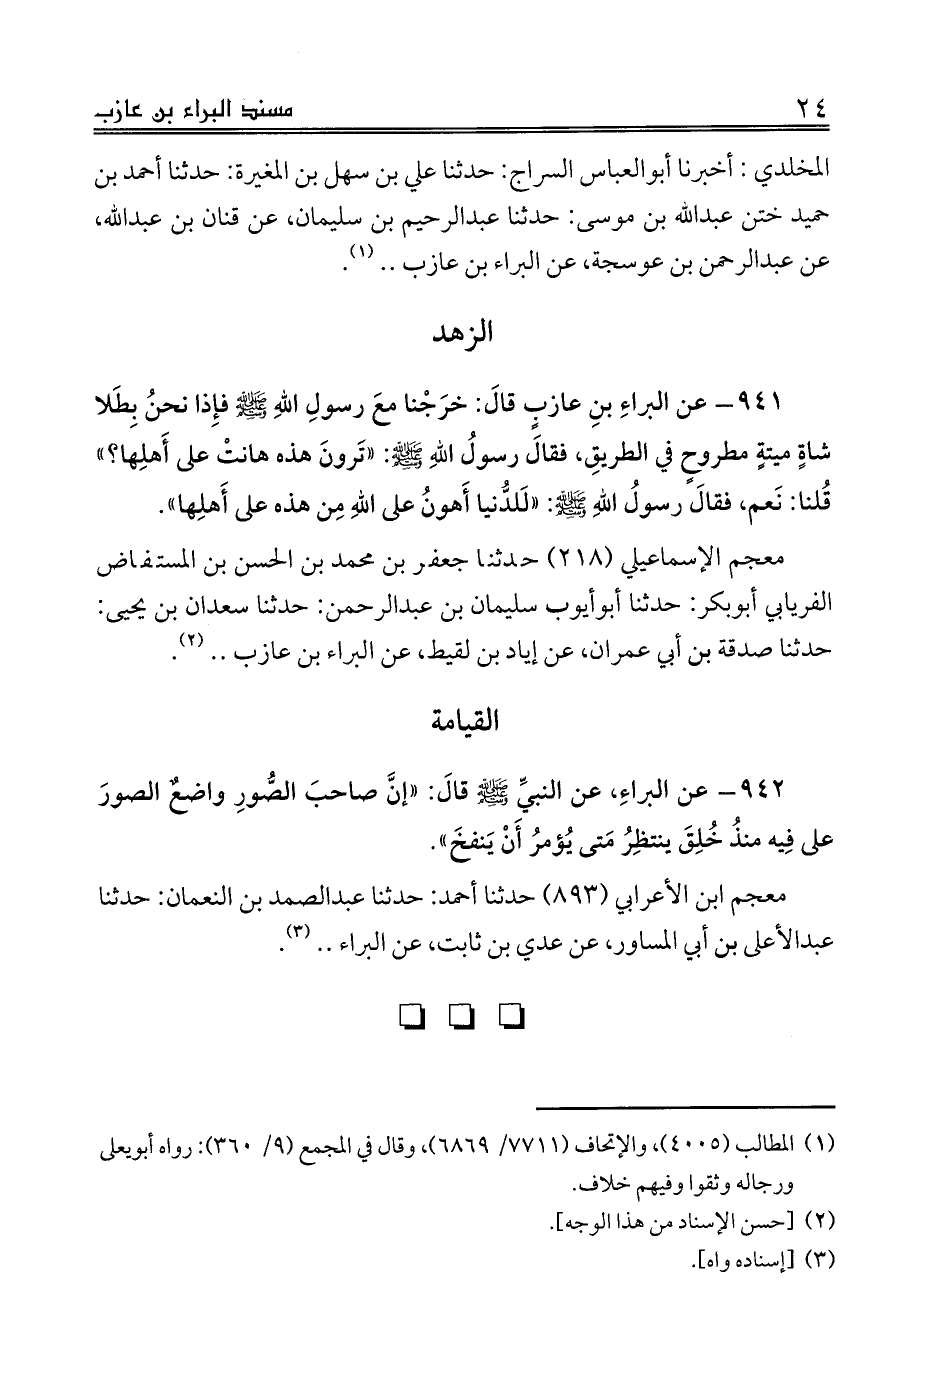 ٢٤ مسند البراء بن عازب
المخلدي : أخبرنا أبوالعباس السراج: حدثنا علي بن سهل بن المغيرة: حدثنا أحمد بن
حميد ختن عبدالله بن موسى: حدثنا عبدالرحيم بن سليمان، عن قنان بن عبدالله،
عن عبدالرحمن بن عوسجة، عن البراء بن عازب .. (١).
الزهد
٩٤١ـ عن البراءِ بنِ عازبٍ قالَ: خرَجْنا معَ رسولِ اللهِ ﷺ فإِذا نحنُ بِطَلا
شاةٍ ميتةٍ مطروحٍ في الطريقِ، فقالَ رسولُ اللهِ ﷺ: «تَرونَ هذه هانتْ على أَهلِها؟»
قُلنا: نَعم، فقالَ رسولُ اللهِ ﷺ: «لَلدُّنيا أَهونُ على اللهِ مِن هذه على أَهلِها».
معجم الإسماعيلي (٢١٨) حدثنا جعفر بن محمد بن الحسن بن المستفاض
الفريابي أبوبكر: حدثنا أبوأيوب سليمان بن عبدالرحمن: حدثنا سعدان بن يحيى:
حدثنا صدقة بن أبي عمران، عن إياد بن لقيط، عن البراء بن عازب .. (٢).
القيامة
٩٤٢ـ عن البراءِ، عن النبيِّ ﷺ قالَ: «إنَّ صاحبَ الصُّورِ واضعٌ الصورَ
على فِيه منذُ خُلِقَ ينتظِرُ مَتى يُؤمرُ أَنْ يَنفخَ».
معجم ابن الأعرابي (٨٩٣) حدثنا أحمد: حدثنا عبدالصمد بن النعمان: حدثنا
عبدالأعلى بن أبي المساور، عن عدي بن ثابت، عن البراء .. (٣).
(١) المطالب (٤٠٠٥)، والإتحاف (٧٧١١/ ٦٨٦٩)، وقال في المجمع (٩/ ٣٦٠): رواه أبويعلى
ورجاله وثقوا وفيهم خلاف.
(٢) [حسن الإسناد من هذا الوجه].
(٣) [إسناده واه].